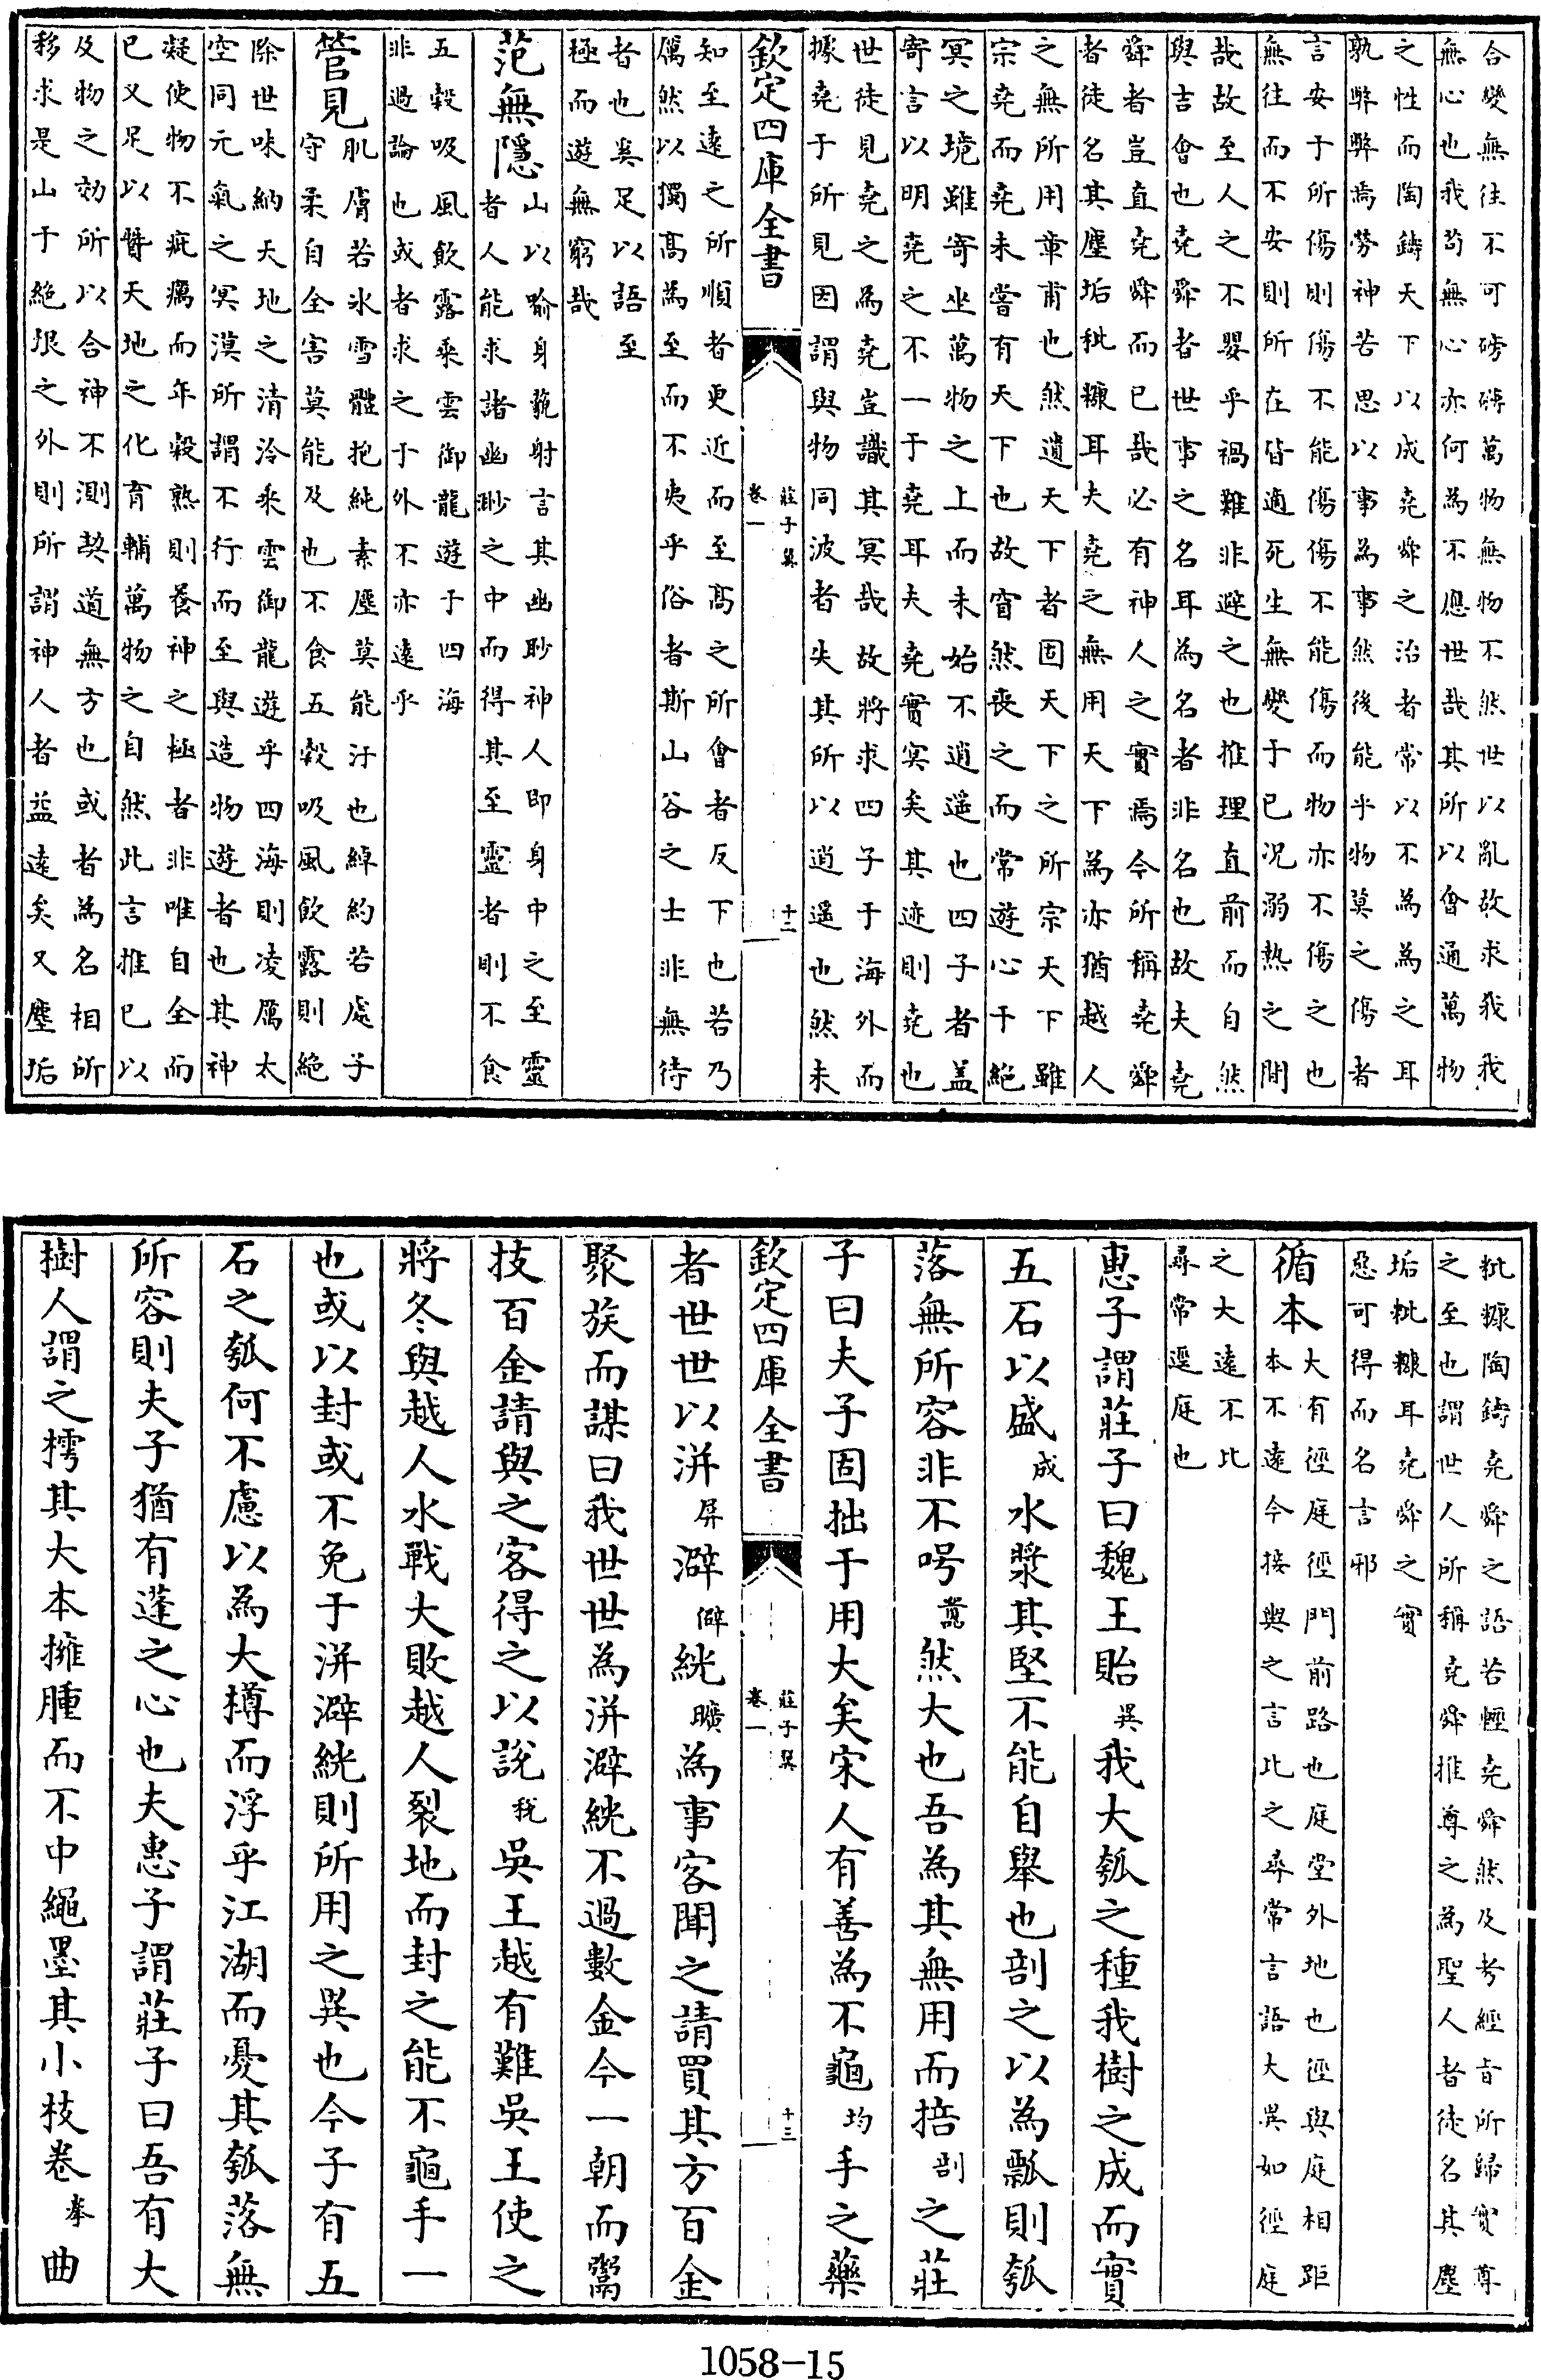 合變無往不可磅礴萬物無物不然世以亂故求我我
無心也我苟無心亦何為不應世哉其所以會通萬物
之性而陶鑄天下以成堯舜之治者常以不為為之耳
孰弊弊焉勞神苦思以事為事然後能乎物莫之傷者
言安于所傷則傷不能傷傷不能傷而物亦不傷之也
無往而不安則所在皆適死生無變于已況溺熱之間
哉故至人之不嬰乎禍難非避之也推理直前而自然
與吉會也堯舜者世事之名耳為名者非名也故夫堯
舜者豈直堯舜而已哉必有神人之實焉今所稱堯舜
者徒名其塵垢秕糠耳夫堯之無用天下為亦猶越人
之無所用章甫也然遺天下者固天下之所宗天下雖
宗堯而堯未嘗有天下也故窅然喪之而常遊心于絶
冥之境雖寄坐萬物之上而未始不逍遥也四子者盖
寄言以明堯之不一于堯耳夫堯實冥矣其迹則堯也
世徒見堯之為堯豈識其冥哉故將求四子于海外而
據堯于所見因謂與物同波者失其所以逍遥也然未
欽定四庫全書
莊子翼
卷一
十二
知至遠之所順者更近而至髙之所會者反下也若乃
厲然以獨髙為至而不夷乎俗者斯山谷之士非無待
者也奚足以語至
極而遊無窮哉
范無隱
山以喻身藐射言其幽眇神人即身中之至靈
者人能求諸幽眇之中而得其至靈者則不食
五穀吸風飲露乘雲御龍遊于四海
非過論也或者求之于外不亦遠乎
管見
肌膚若氷雪體抱純素塵莫能汙也綽約若處子
守柔自全害莫能及也不食五穀吸風飲露則絶
除世味納天地之清泠乘雲御龍遊乎四海則凌厲太
空同元氣之冥漠所謂不行而至與造物遊者也其神
凝使物不疵癘而年穀熟則養神之極者非唯自全而
已又足以贊天地之化育輔萬物之自然此言推已以
及物之効所以合神不測契道無方也或者為名相所
移求是山于絶垠之外則所謂神人者益遠矣又塵垢
粃糠陶鑄堯舜之語若輕堯舜然及考經旨所歸實尊
之至也謂世人所稱堯舜推尊之為聖人者徒名其塵
垢粃糠耳堯舜之實
惡可得而名言邪
循本
大有徑庭徑門前路也庭堂外地也徑與庭相距
本不遠今接輿之言比之尋常言語大異如徑庭
之大遠不比
尋常逕庭也
惠子謂莊子曰魏王貽異我大瓠之種我樹之成而實
五石以盛成水漿其堅不能自舉也剖之以為瓢則瓠
落無所容非不呺嚻然大也吾為其無用而掊剖之莊
子曰夫子固拙于用大矣宋人有善為不龜均手之藥
欽定四庫全書
莊子翼
卷一
十三
者世世以洴屏澼僻絖曠為事客聞之請買其方百金
聚族而謀曰我世世為洴澼絖不過數金今一朝而鬻
技百金請與之客得之以說稅吳王越有難吳王使之
將冬與越人水戰大敗越人裂地而封之能不龜手一
也或以封或不免于洴澼絖則所用之異也今子有五
石之瓠何不慮以為大樽而浮乎江湖而憂其瓠落無
所容則夫子猶有蓬之心也夫惠子謂莊子曰吾有大
樹人謂之樗其大本擁腫而不中繩墨其小枝卷拳曲
1058-15